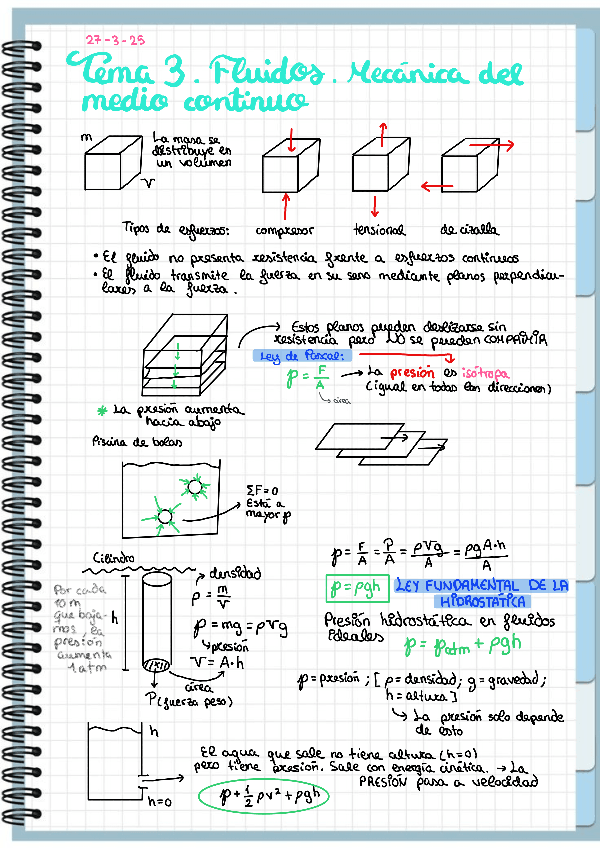 27-3-25
Tema 3. Fluidos. Mecánica del
medio continuo
m
V
La masa se
distribuye en
un volumen
Tipos de esfuerzos: compresor tensional de cizalla
• El fluido no presenta resistencia frente a esfuerzos continuos
• El fluido transmite la fuerza en su seno mediante planos perpendicu-
lares a la fuerza.
→ Estos planos pueden deslizarse sin
resistencia pero NO se pueden COMPRIMIR
Ley de Pascal:
p = F/A → La presión es isótropa
(igual en todas las direcciones)
área
* La presión aumenta
hacia abajo
Piscina de bolas
ΣF=0
Está a
mayor p
Cilindro
Por cada
10 m
que baja-
mos, la
presión
aumenta
1 atm
h
densidad
ρ = m/V
P = mg = ρVg
presión
V = A·h
área
P (fuerza peso)
p = F/A = P/A = ρVg/A = ρgA·h/A
p = ρgh LEY FUNDAMENTAL DE LA
HIDROSTÁTICA
Presión hidrostática en fluidos
Ideales
p = patm + ρgh
p = presión ; [ρ = densidad; g = gravedad;
h = altura]
↳ La presión solo depende
de esto
h
h=0
El agua que sale no tiene altura (h=0)
pero tiene presión. Sale con energía cinética. → La
PRESIÓN pasa a velocidad
p + 1/2 ρv² + ρgh